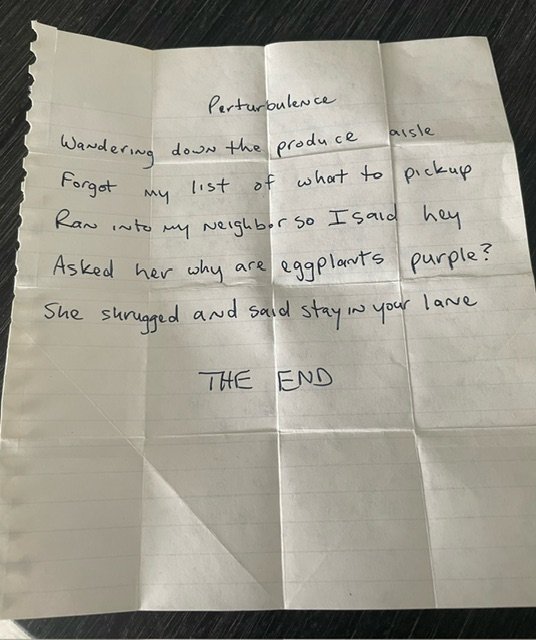 Perturbulence
Wandering down the produce aisle
Forgot my list of what to pickup
Ran into my neighbor so I said hey
Asked her why are eggplants purple?
She shrugged and said stay in your lane
THE END